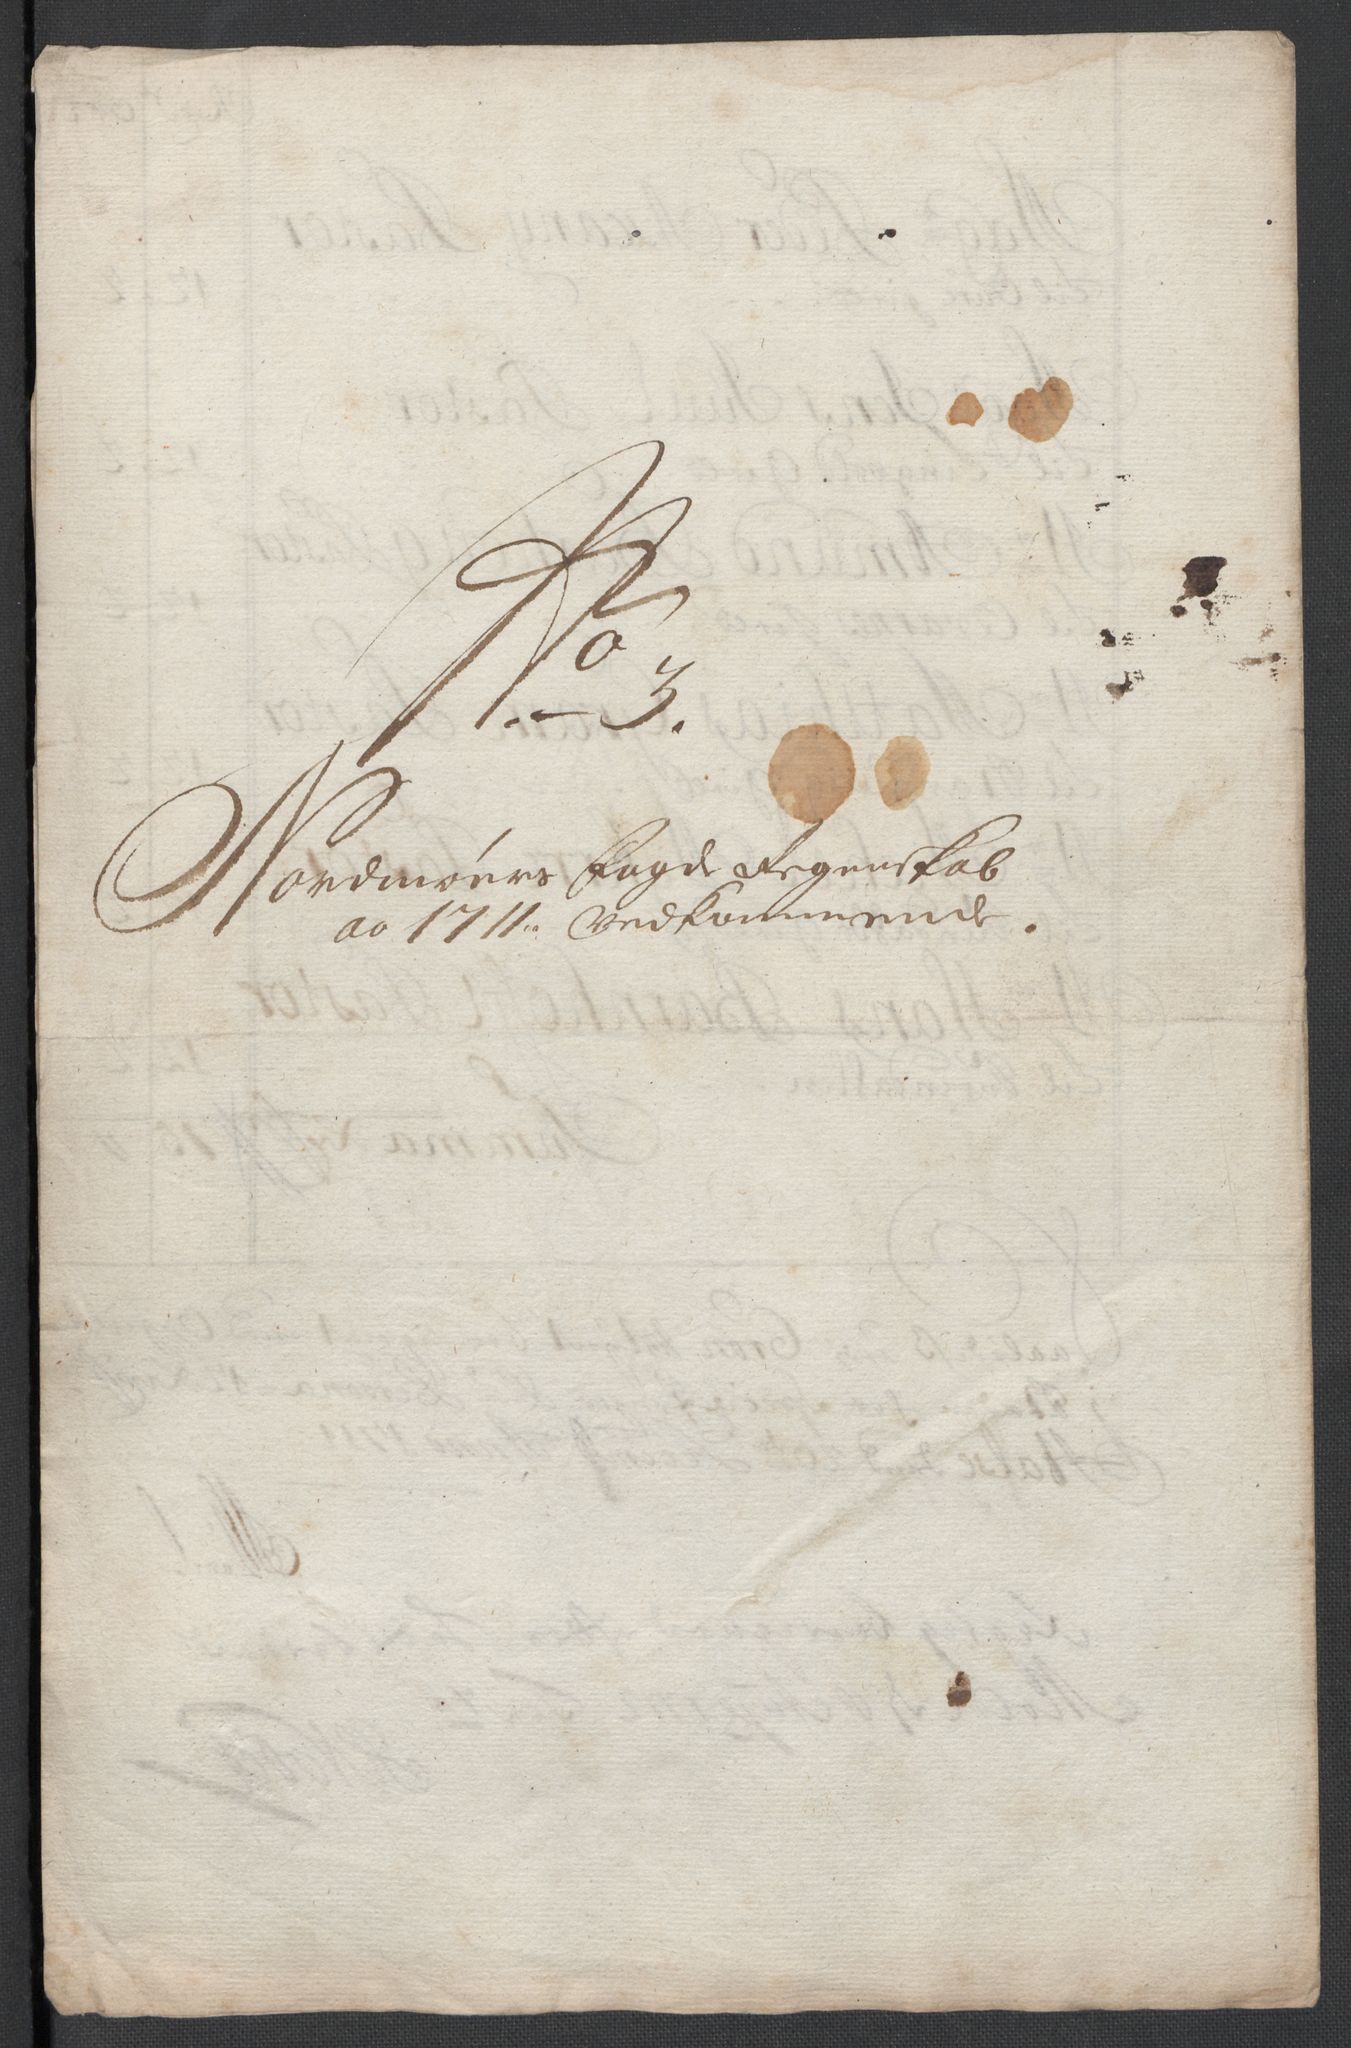 No
3.
Nordmøers fogde Regenskab
ao 1711. vedkommende.